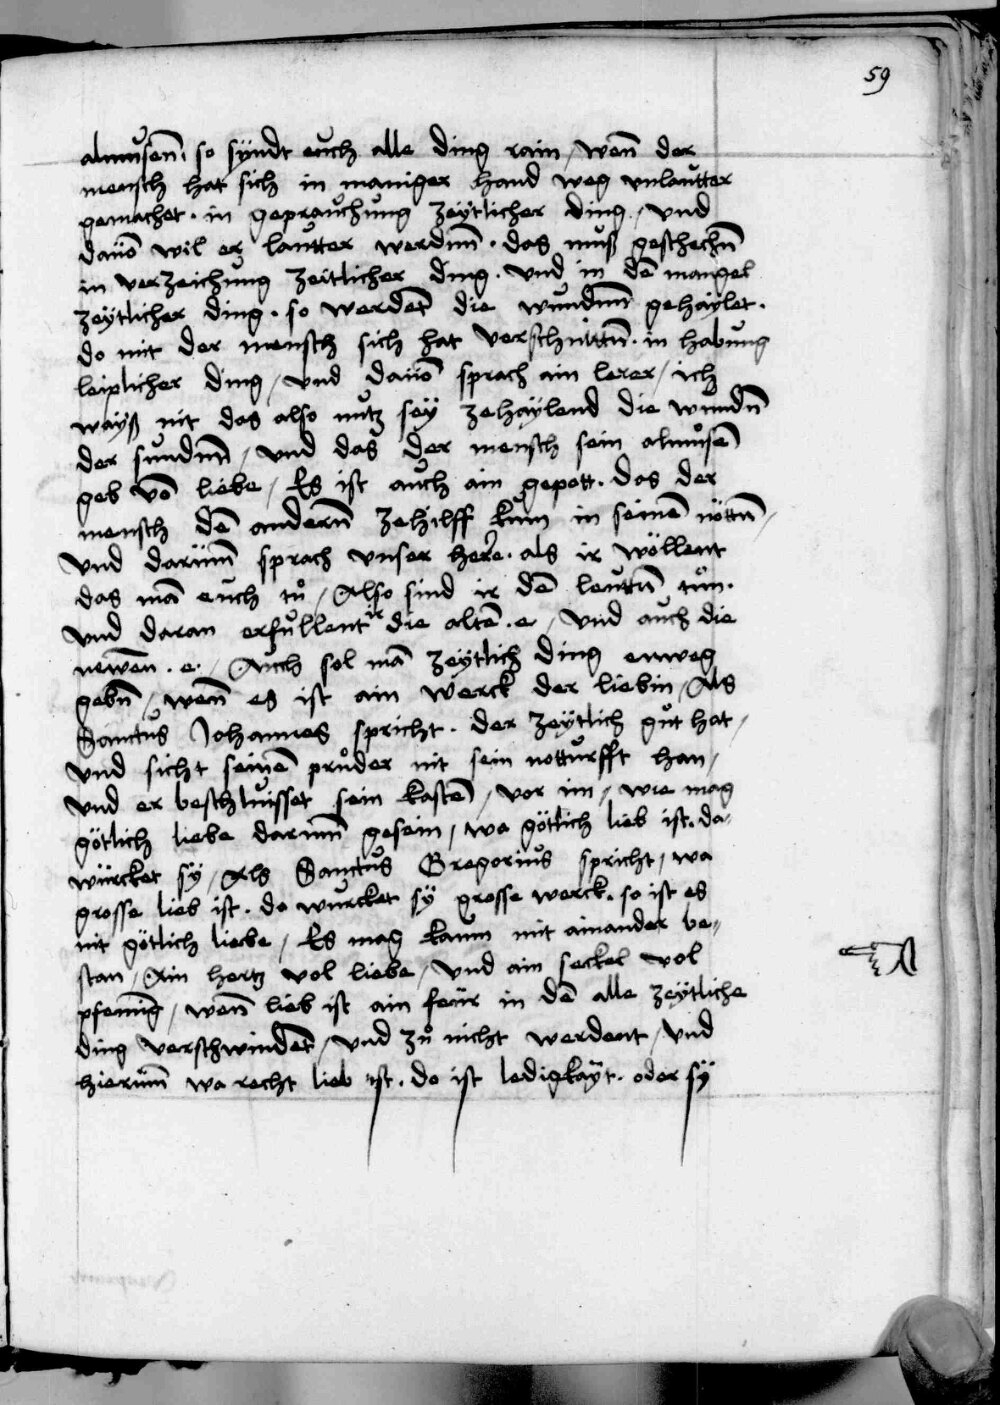 59
almuͦsenn̄ · so syndt euch alle ding rain / wenn̄ der
mensch hat sich in maniger hand weg vnlautter
gemachet · in geprauchung zeÿtlicher ding / vnd
dauō wil er lautter werdnn̄ · das muß geschechn̄
in verzeichung zeitlicher ding · vnd in dē mangel
zeÿtlicher ding · so werdēt die wundnn̄ gehaÿlet ·
do mit der mensch sich hat verschnittn̄ · in habung
leiplicher ding / vnd dauō sprach ain lerer / ich
wayß nit das also nutz seÿ zehaÿlend die wundn̄
der sundnn̄ / vnd das der mensch sein almuͦsē
geb vō liebe / Es ist auch ain gepott · das der
mensch dē andernn̄ zehilff kum in seinē nöttn̄ /
vnd darumm̄ sprach vnser here · als ir wöllent
das mā euch tuͦ / Also sind ir dē leuttn̄ tuͦn ·
vnd daran erfullent ir die altē · e / vnd auch die
newen · e · / Auch sol mā zeÿtlich ding enweg
gebn̄ / wenn̄ es ist ain werck der liebin / Als
Sanctus Johannes spricht · der zeÿtlich guͦt hat /
vnd sicht seinē pruͦder nit sein notturfft han /
vnd er beschluisset sein kastē / vor im / wie mag
götlich liebe darinn̄ gesein / wa götlich lieb ist · da
würcket sÿ / Als Sanctus Gregorius spricht / wa
grosse lieb ist · do wurcket sÿ grosse werck · so ist es
nit götlich liebe / Es mag kaum mit ainander be /
stan / Ain hertz vol liebe / vnd ain seckel vol
pfennīg / wenn̄ lieb ist ain feür in dē alle zeÿtliche
ding verschwindēt / vnd zuͦ nicht werdent / vnd
hierumm̄ wa recht lieb ist · do ist ledigkaÿt · oder sÿ